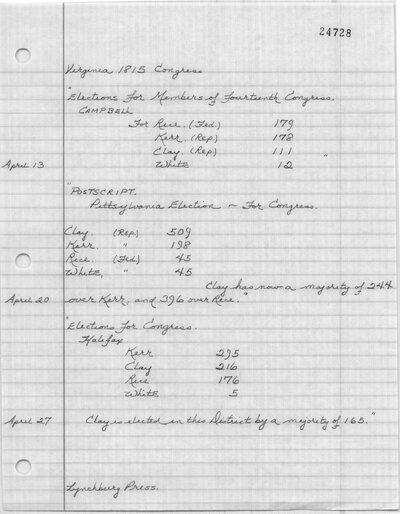 24728
Virginia 1815 Congress
"Elections for Members of Fourteenth Congress.
CAMPBELL
For Rice. (Fed) 179
Kerr. (Rep) 178
Clay. (Rep) 111
April 13 White 12 "
"POSTSCRIPT.
Pittsylvania Election – For Congress.
Clay. (Rep) 509
Kerr. " 198
Rice. (Fed) 45
White, " 45
Clay has now a majority of 244
April 20 over Kerr, and 396 over Rice."
"Elections for Congress.
Halifax
Kerr 295
Clay 216
Rice 176
White 5
April 27 Clay is elected in this District by a majority of 165."
Lynchburg Press.